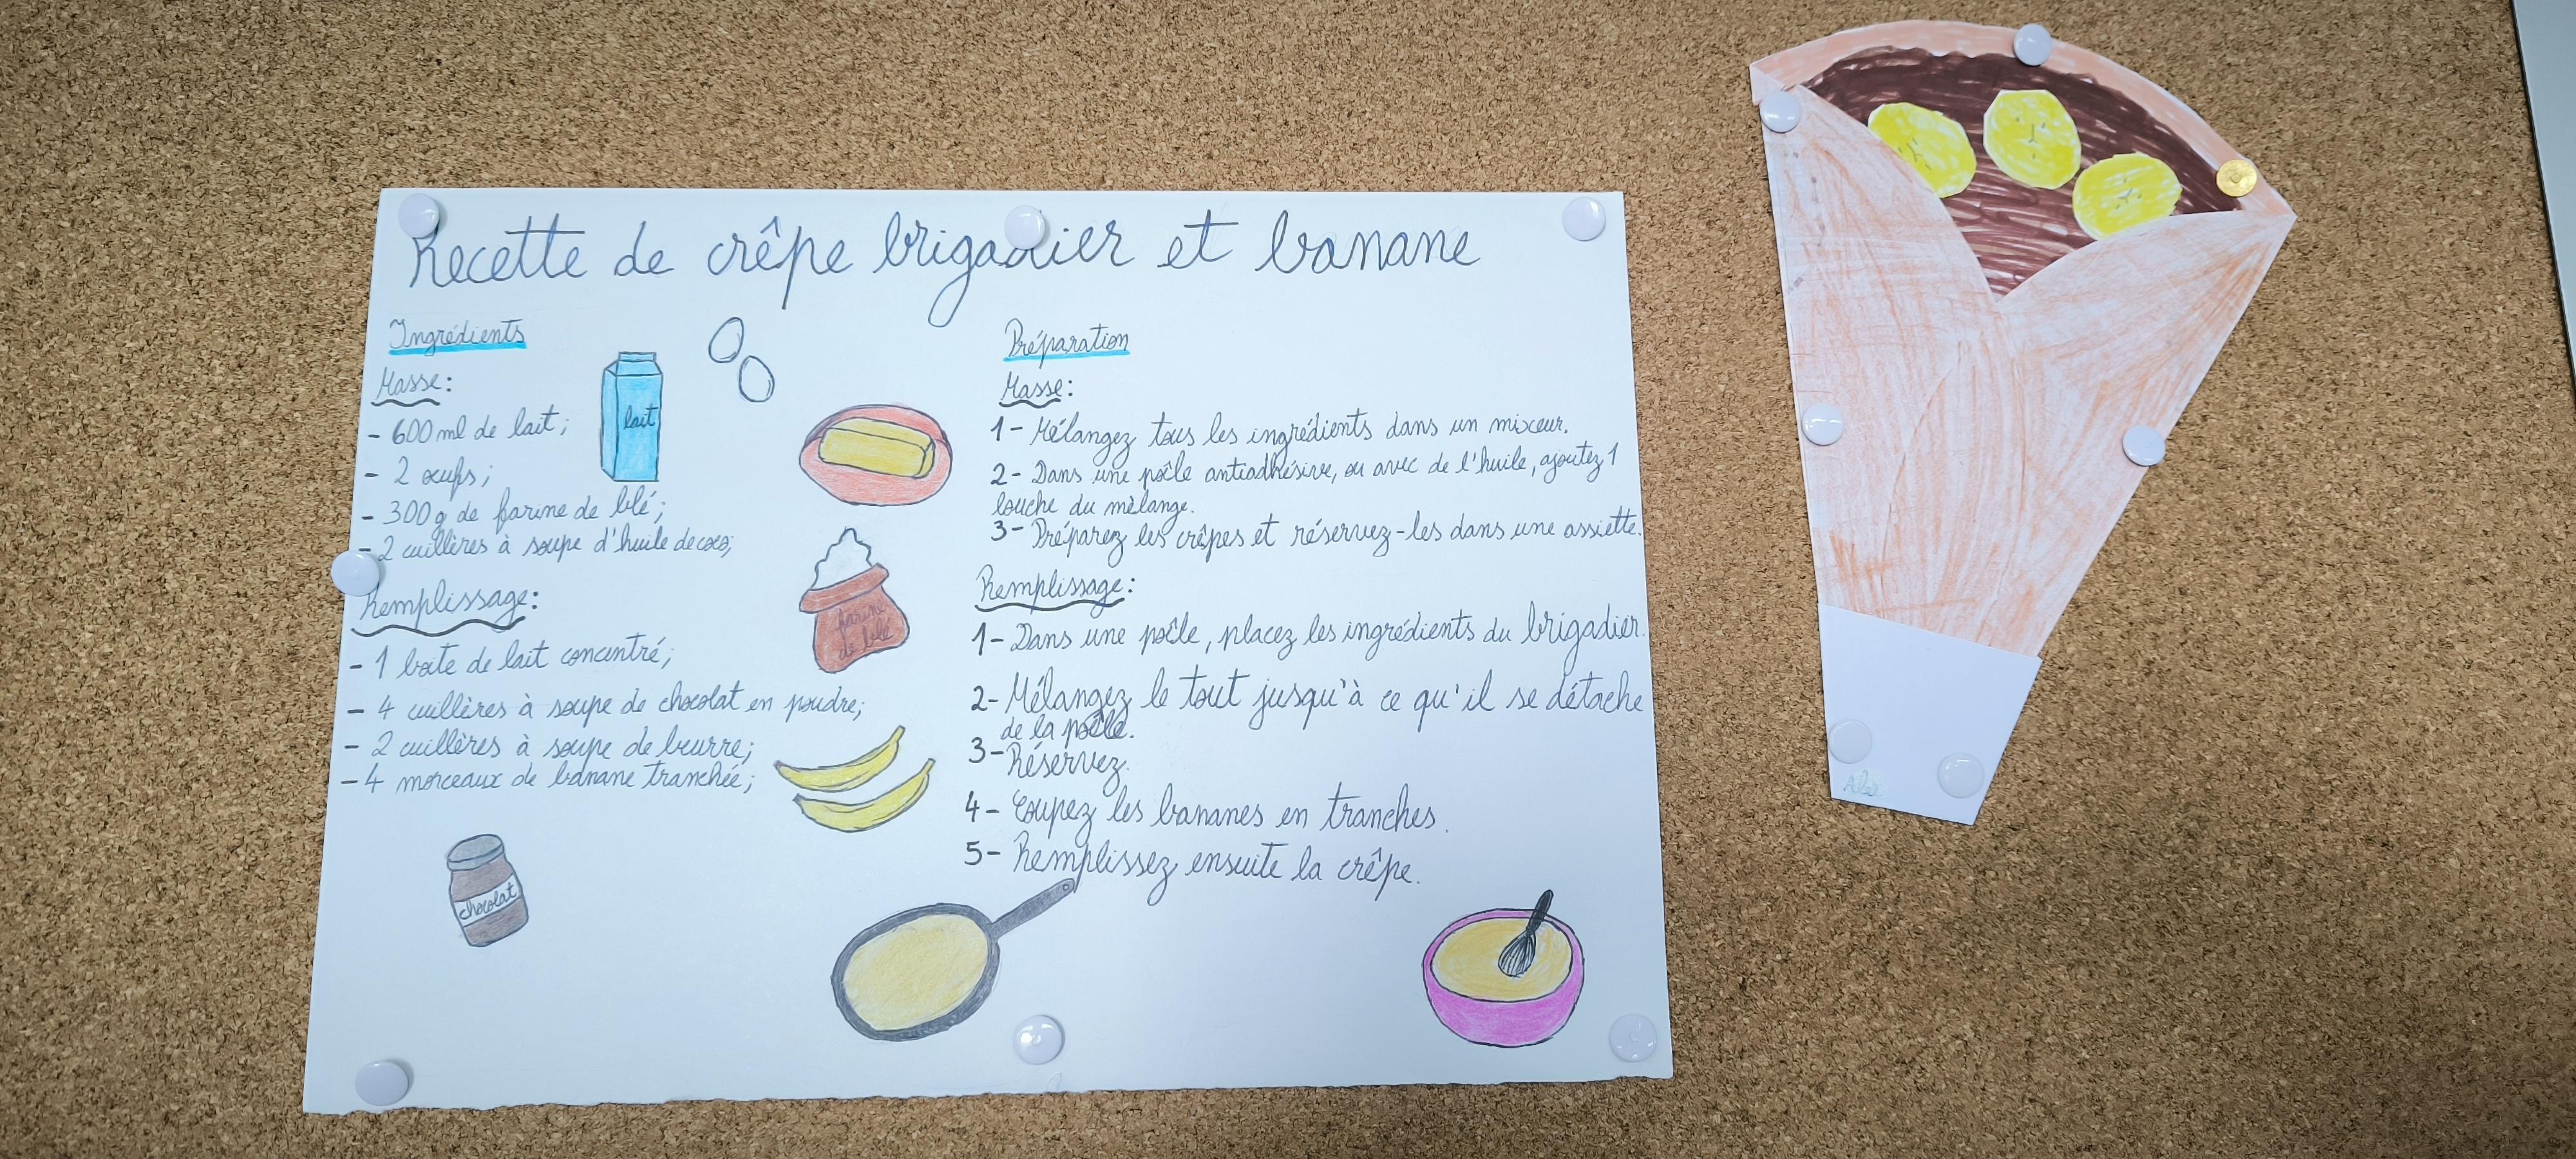 Recette de crêpe brigadier et banane
Ingrédients
Masse:
- 600 ml de lait;
- 2 œufs;
- 300 g de farine de blé;
- 2 cuillères à soupe d'huile de coco;
Remplissage:
- 1 boîte de lait concentré;
- 4 cuillères à soupe de chocolat en poudre;
- 2 cuillères à soupe de beurre;
- 4 morceaux de banane tranchée;
lait
farine
de blé
chocolat
Préparation
Masse:
1- Mélangez tous les ingrédients dans un mixeur.
2- Dans une poêle antiadhésive, ou avec de l'huile, ajoutez 1
louche du mèlange.
3- Préparez les crêpes et réservez-les dans une assiette.
Remplissage:
1- Dans une poêle, placez les ingrédients du brigadier.
2- Mélangez le tout jusqu'à ce qu'il se détache
de la poêle.
3- Réservez.
4- Coupez les bananes en tranches.
5- Remplissez ensuite la crêpe.